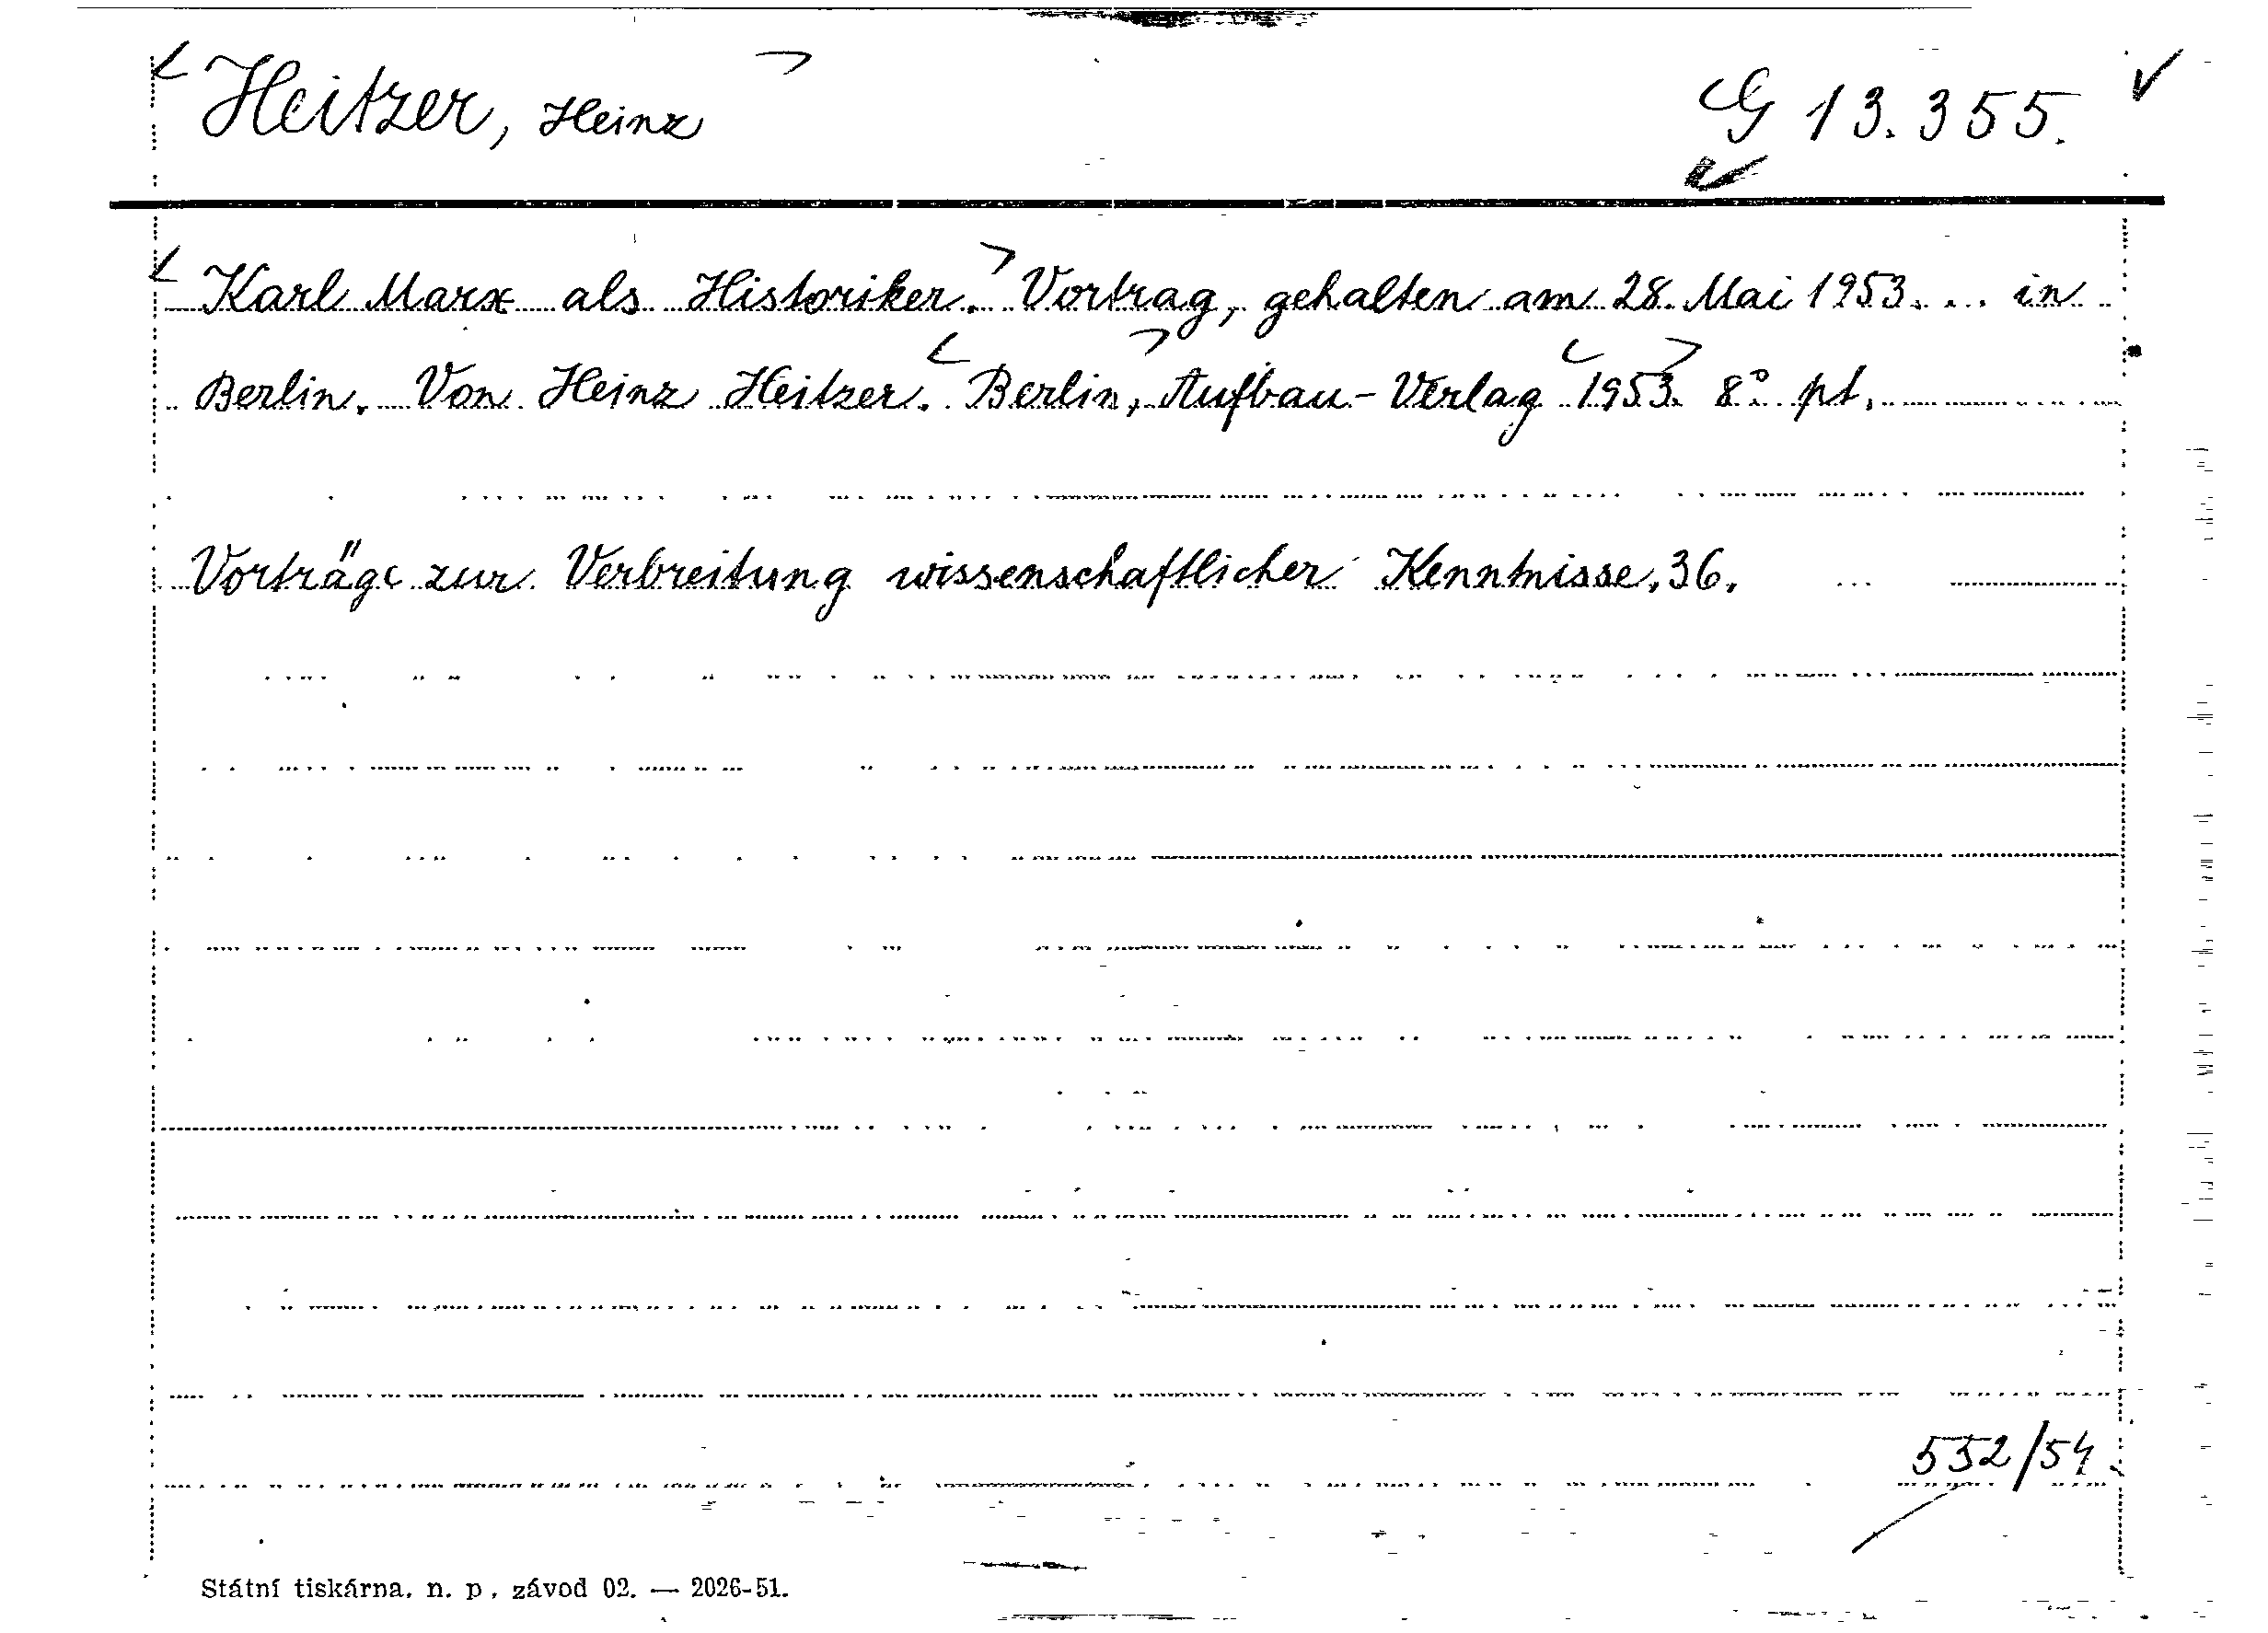 Heitzer, Heinz
G 13.355.
Karl Marx als Historiker. Vortrag, gehalten am 28. Mai 1953... in
Berlin. Von Heinz Heitzer. Berlin, Aufbau-Verlag 1953. 8° pt.
Vorträge zur Verbreitung wissenschaftlicher Kenntnisse, 36.
552/54
Státní tiskárna, n. p., závod 02. — 2026-51.